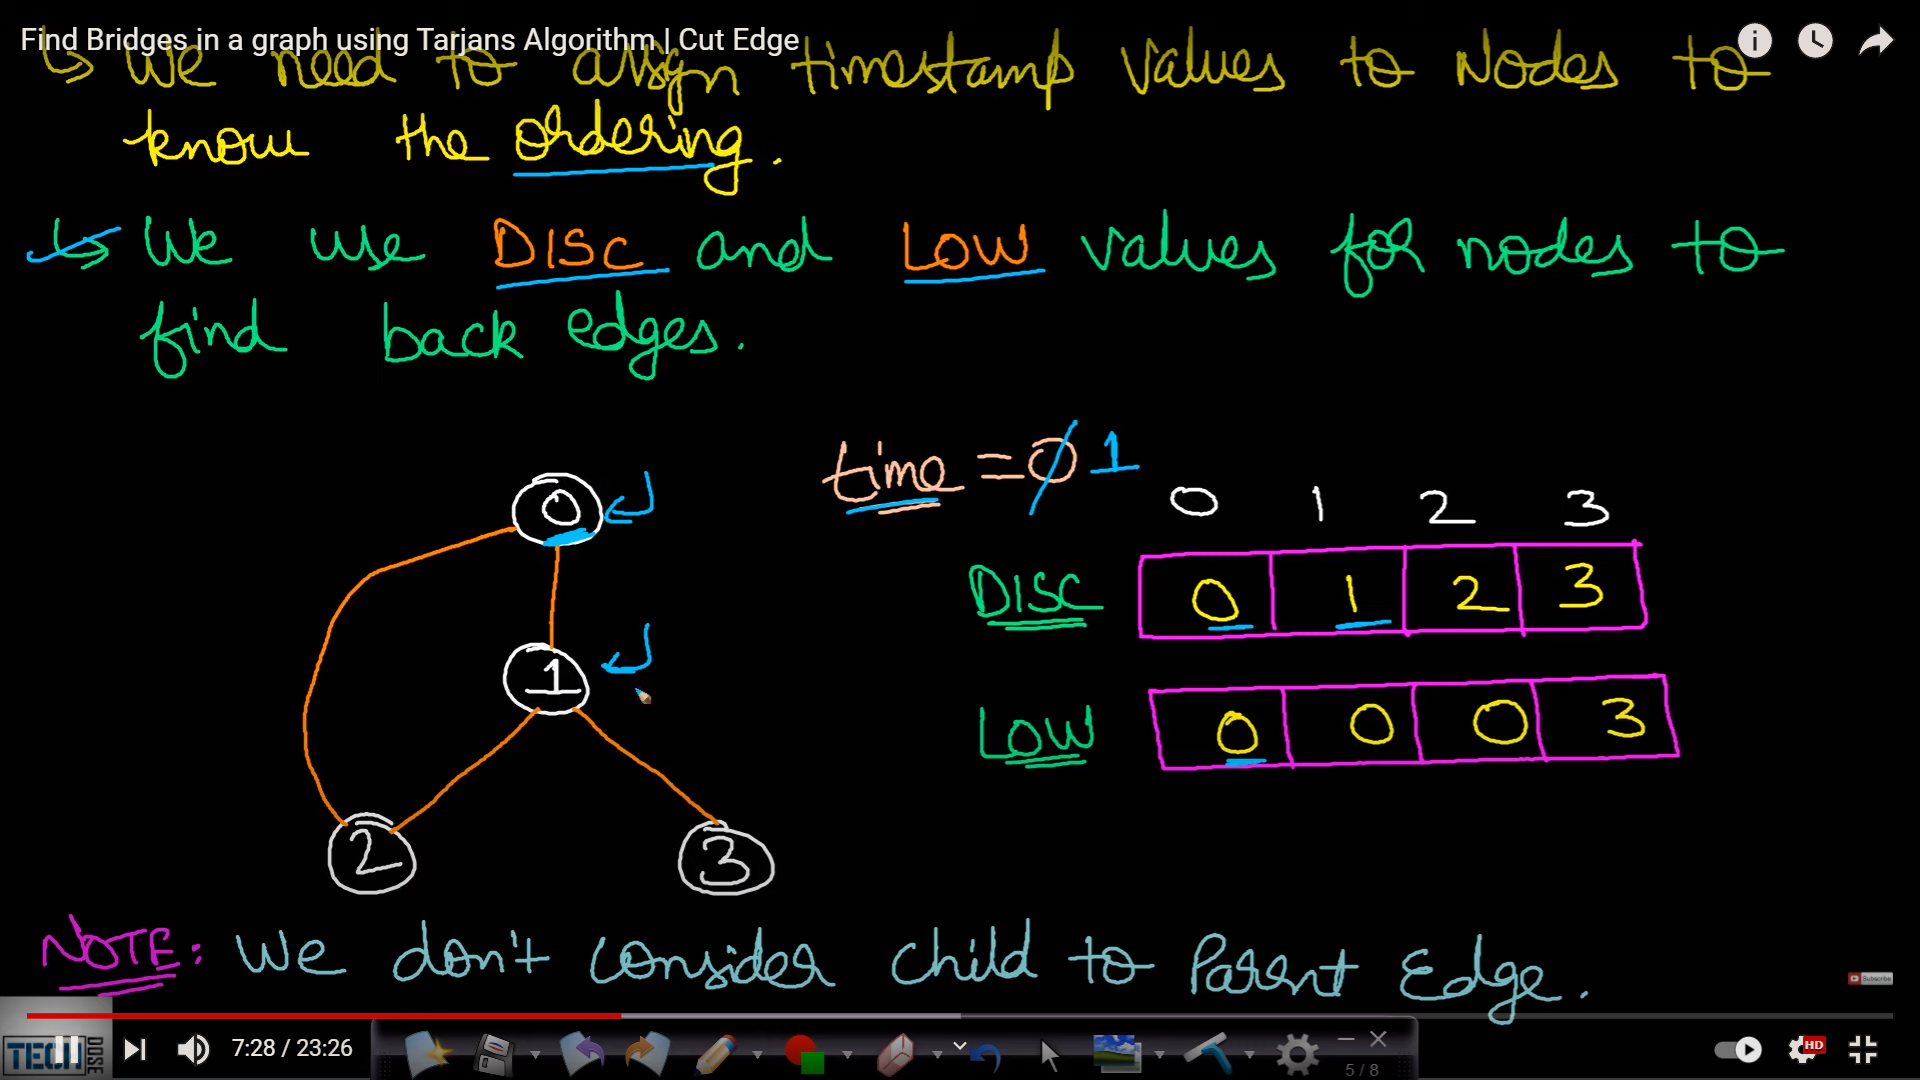 Find Bridges in a graph using Tarjans Algorithm | Cut Edge
↳ We need to assign timestamp values to Nodes to
know the ordering.
↳ We use DISC and LOW values for nodes to
find back edges.
time = 0 1
0 1 2 3
DISC 0 1 2 3
LOW 0 0 0 3
0
1
2
3
NOTE: We don't consider child to Parent Edge.
Subscribe
TECH DOSE
7:28 / 23:26
5 / 8
HD